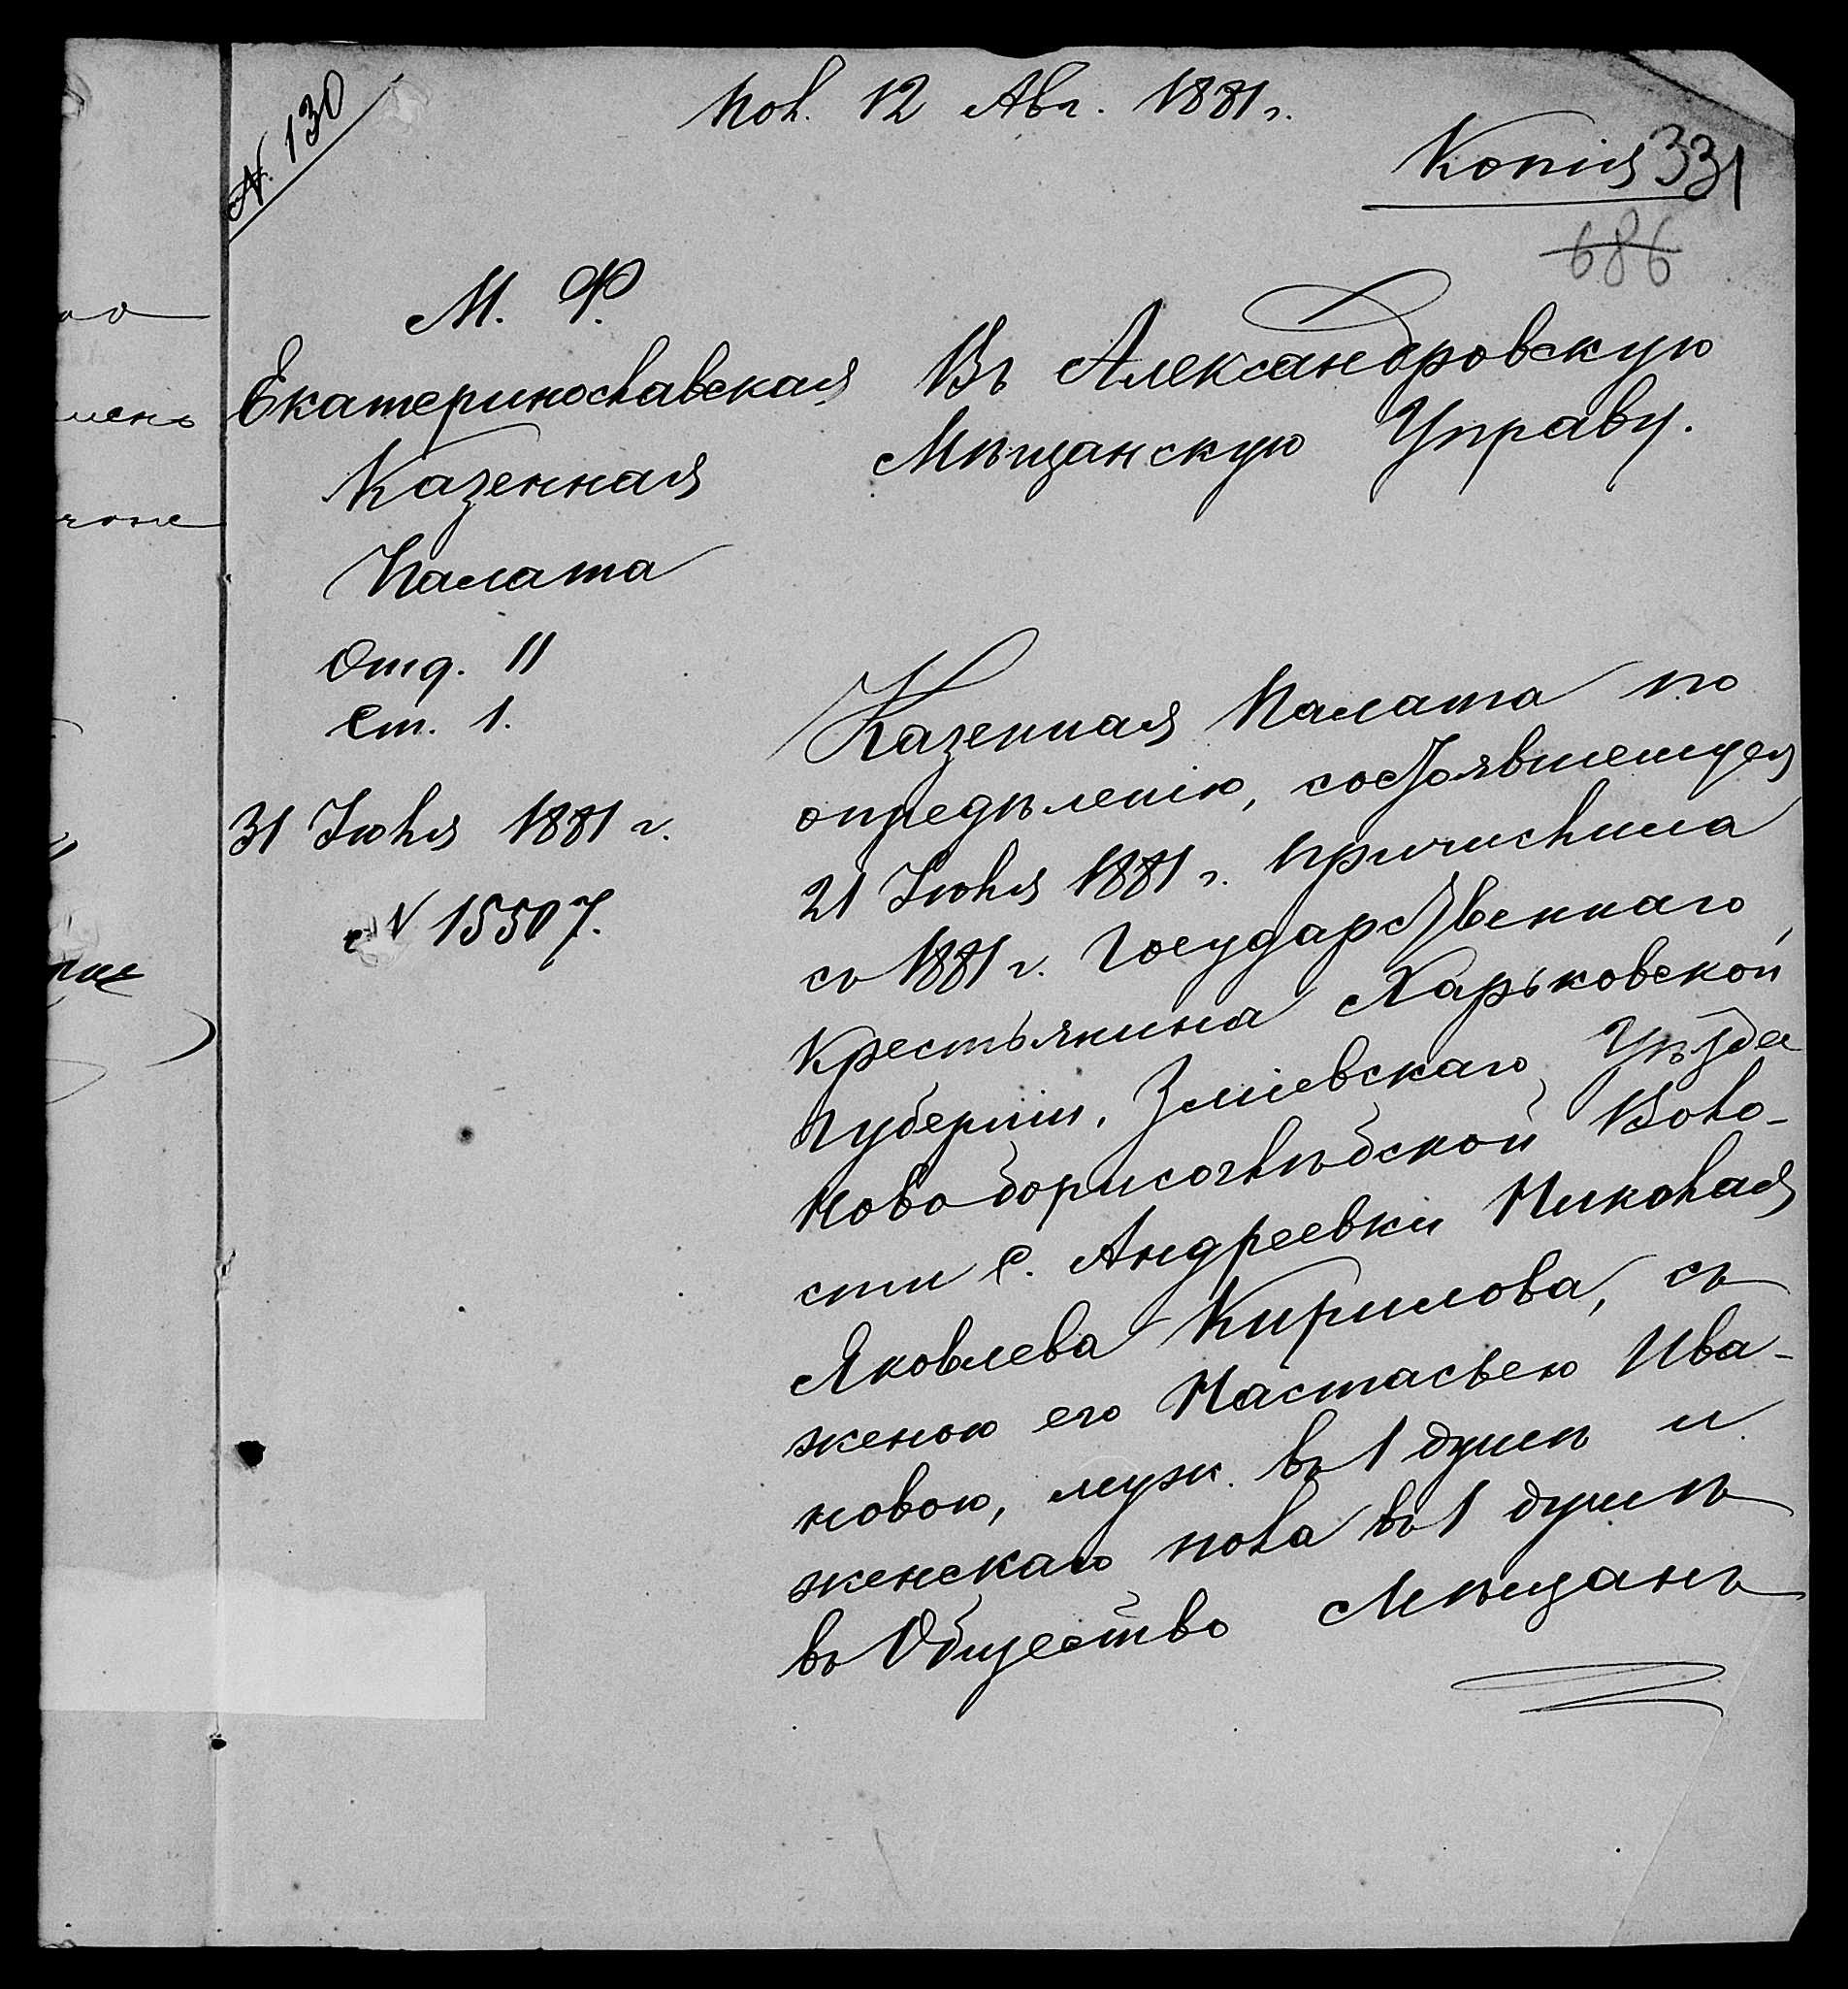 N. 130
Пол. 12 Авг. 1881 г.
Копія 331
686
М. Ф.
Екатеринославская
Казенная
Палата
Отд. II
Ст. 1.
31 Іюля 1881 г.
№ 15507.
Въ Александровскую
Мѣщанскую Управу.
Казенная Палата по
опредѣленію, состоявшемуся
21 Іюля 1881 г. причислила
съ 1881 г. Государственнаго
крестьянина Харьковской
Губерніи, Зміевскаго Уѣзда
Новоборисоглѣбской Воло-
сти с. Андреевки Николая
Яковлева Кирилова, съ
женою его Настасьею Ива-
новою, муж. въ 1 душѣ и
женскаго пола въ 1 душѣ
въ Общество Мѣщанъ